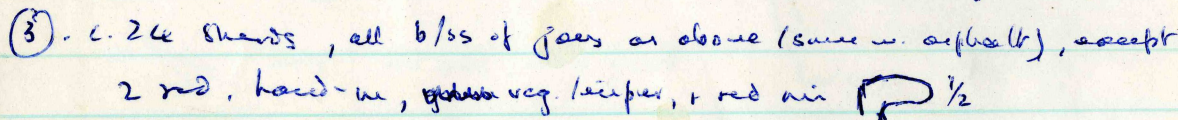 ③. c. 24 sherds, all b/ss of jars as above (some w. asphalt), except
2 red, hand-m, veg. temper, + red rim 1/2